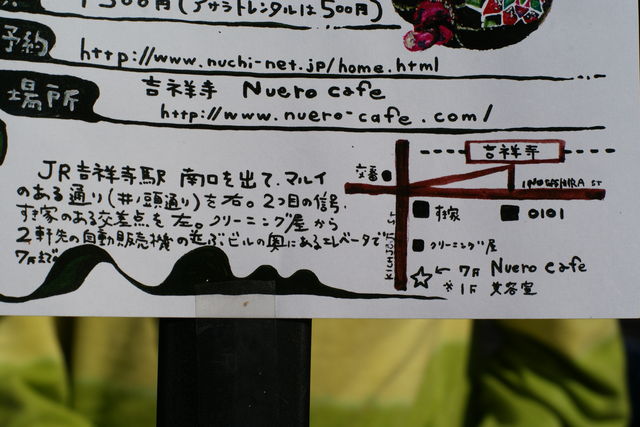 1500円(アサラトレンタルは500円)
予約 http://www.nuchi-net.jp/home.html
場所 吉祥寺 Nuero cafe
http://www.nuero-cafe.com/
JR吉祥寺駅 南口を出て、マルイ
のある通り(井ノ頭通り)を右。2つ目の信号、
すき家のある交差点を左。クリーニング屋から
2軒先の自動販売機の並ぶビルの奥にあるエレベータで
7Fまで
吉祥寺
交番
INOKASHIRA ST
KICHIJOJI ST
すき家
0101
クリーニング屋
☆ ← 7F Nuero cafe
※ 1F 美容室